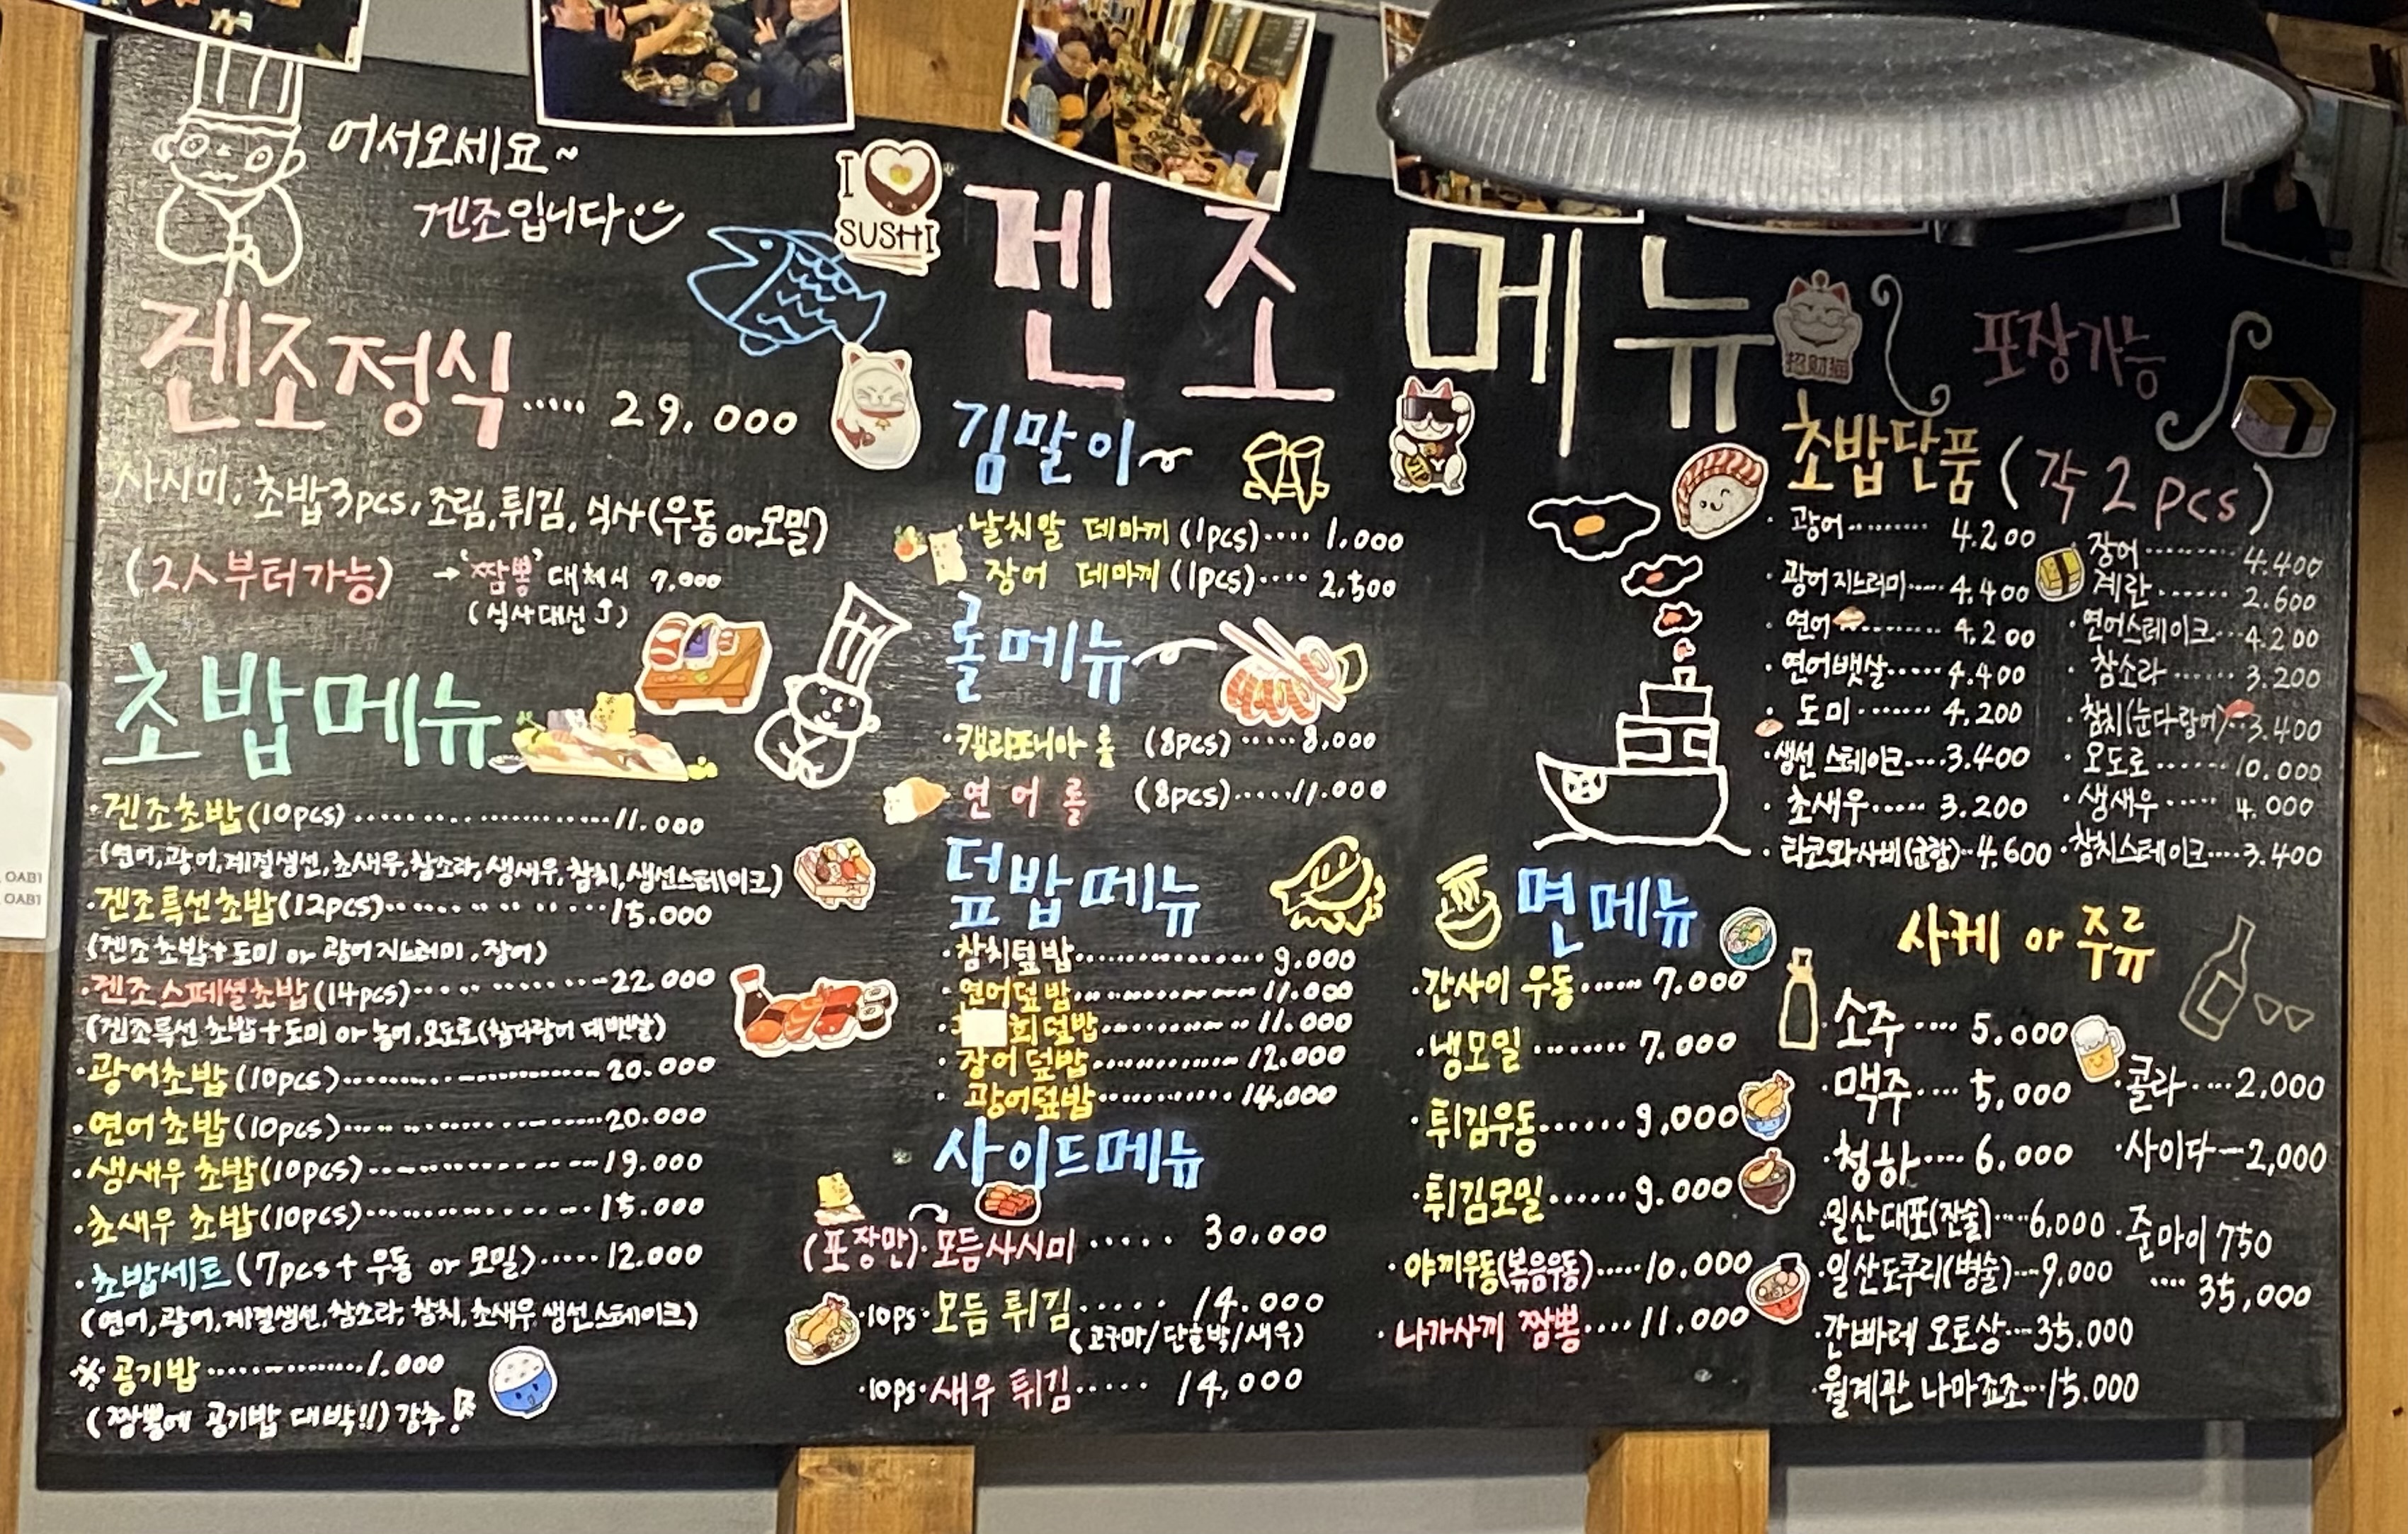 어서오세요~
겐조입니다
I
SUSHI
겐조메뉴
招财猫
포장가능
겐조정식 ..... 29,000
사시미, 초밥3pcs, 조림, 튀김, 식사(우동 or 모밀)
(2人부터가능) → '짬뽕' 대체시 7,000
(식사대신⤴)
초밥메뉴
·겐조초밥(10pcs) ........ 11.000
(연어,광어,계절생선,초새우,참소라,생새우,참치,생선스테이크)
·겐조특선초밥(12pcs) ........ 15.000
(겐조초밥+도미 or 광어지느러미,장어)
·겐조스페셜초밥(14pcs) ........ 22.000
(겐조특선 초밥+도미 or 농어,오도로(참다랑어 대뱃살)
·광어초밥(10pcs) ........ 20.000
·연어초밥(10pcs) ........ 20.000
·생새우 초밥(10pcs) ........ 19.000
·초새우 초밥(10pcs) ........ 15.000
·초밥세트(7pcs+우동 or 모밀) ..... 12.000
(연어,광어,계절생선,참소라,참치,초새우 생선스테이크)
※공기밥 ........ 1.000
(짬뽕에 공기밥 대박!!) 강추!
김말이
·날치알 데마끼(1pcs) .... 1,000
장어 데마끼(1pcs) .... 2,500
롤메뉴
·캘리포니아 롤 (8pcs) ..... 8,000
·연어롤 (8pcs) ..... 11.000
덮밥메뉴
·참치덮밥 ........ 9.000
·연어덮밥 ........ 11.000
회덮밥 ........ 11.000
·장어덮밥 ........ 12.000
·광어덮밥 ........ 14,000
사이드메뉴
(포장만)·모듬사시미 ..... 30,000
·10ps·모듬 튀김 ..... 14.000
(고구마/단호박/새우)
·10ps·새우 튀김 ..... 14,000
면메뉴
·간사이 우동 ...... 7.000
·냉모밀 ........ 7.000
·튀김우동 ...... 9,000
·튀김모밀 ...... 9.000
·야끼우동(볶음우동) ..... 10.000
·나가사끼 짬뽕 .... 11.000
초밥단품 (각 2pcs)
·광어 ........ 4.200
·광어지느러미 ..... 4.400
·연어 ........ 4.200
·연어뱃살 ..... 4.400
·도미 ....... 4,200
·생선 스테이크 .... 3.400
·초새우 ..... 3.200
·타코와사비(군함) .. 4.600
·장어 ........ 4.400
계란 ...... 2.600
·연어스테이크 ... 4.200
·참소라 ...... 3.200
·참치(눈다랑어) .. 3.400
·오도로 ...... 10.000
·생새우 ..... 4.000
·참치스테이크 .... 3.400
사케 or 주류
·소주 .... 5.000
·맥주 .... 5,000
·청하 .... 6.000
·일산대포(잔술) .... 6,000
·일산도쿠리(병술) ... 9,000
·간빠레 오토상 ... 35.000
·월계관 나마죠조 ... 15.000
·콜라 .... 2,000
·사이다 — 2,000
·준마이 750
.... 35,000
OAB1
OAB1